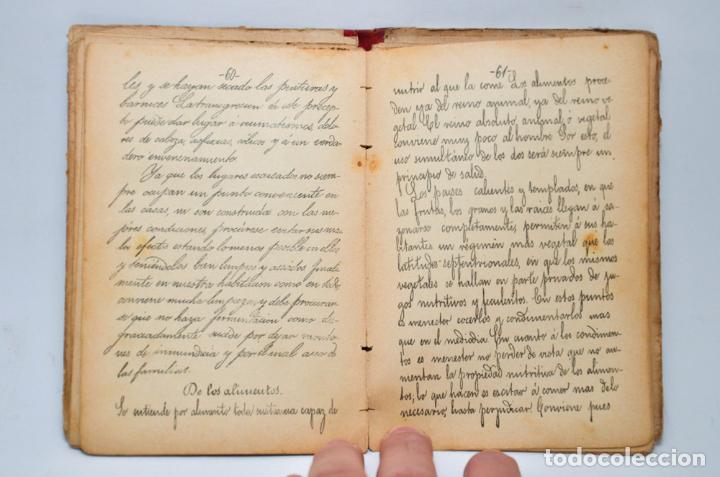 -60-
les, y se hayan secado las pinturas y
barnices. La transgresion á este precep-
to puede dar lugar á reumatismos, dolo-
res de cabeza, asfixias, cólicos y á un verda-
dero envenenamiento.
Ya que los lugares escusados no siem-
pre ocupan un punto conveniente en
las casas, ni son construidos con las me-
jores condiciones, procúrese evitar sus ma-
los efectos estando lo menos posible en ellos
y teniéndolos bien limpios y aseados. Final-
mente en nuestra habitacion como en todo
conviene mucha limpieza, y debe procurar-
se que no haya fermentacion como des-
graciadamente sucede por dejar monto-
nes de inmundicia y
las familias.
De los alimentos.
Se entiende por alimento toda sustancia capaz de
-61-
nutrir al que la come. Los alimentos proce-
den ya del reino animal, ya del reino ve-
getal. El reino absoluto, animal, ó vegetal
conviene muy poco al hombre. Por esto, el
uso simultáneo de los dos será siempre un
principio de salud.
Los paises calientes y templados, en que
las frutas, los granos y las raices llegan á sa-
zonarse completamente, permiten á sus ha-
bitantes un regimen mas vegetal que las
latitudes septentrionales, en que los mismos
vegetales se hallan en parte privados de ju-
gos nutritivos y feculentos. En estos puntos
es menester cocerlos y condimentarlos mas
que en el mediodia. En cuanto á los condimen-
tos es menester no perder de vista que no au-
mentan la propiedad nutritiva de los alimen-
tos; lo que hacen es escitar á comer mas de lo
necesario, hasta perjudicar. Conviene pues
todocoleccion
todocoleccion.net